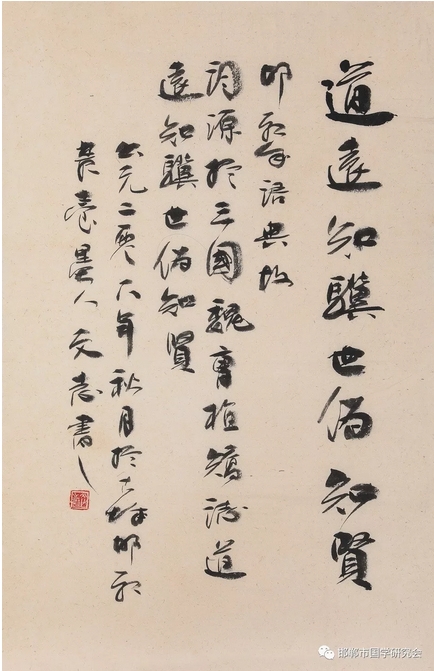 道遠知驥世偽知賢
邯鄲成語典故
詞源於三國魏曹植矯志道
遠知驥世偽知賢
公元二零年秋月於古城邯鄲
叢臺墨人文志書
邯郸市国学研究会